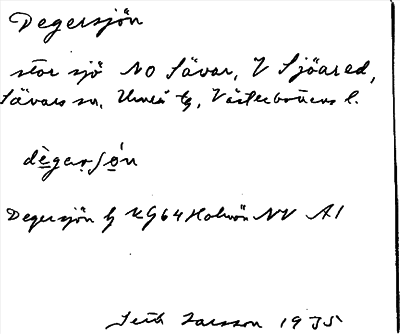 Degersjön
stor sjö NO Sävar, V Sjöared,
Sävars sn, Umeå tg, Västerbottens l.
dègerṣǿn
Degersjön KG64 Holmön NV A1
Larsson 1935